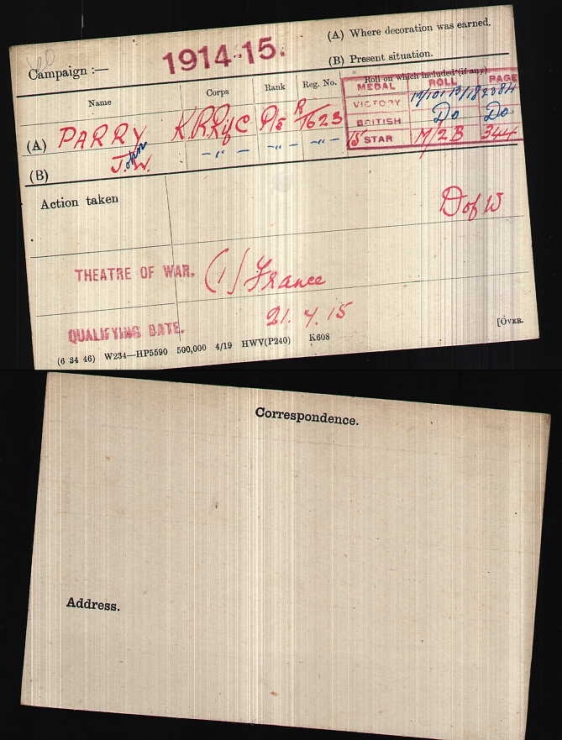 (A) Where decoration was earned.
Campaign :— 1914-15. (B) Present situation.
Name Corps Rank Reg. No. Roll on which included (if any)
MEDAL ROLL PAGE
(A) PARRY K.R.Rif C R/7623
VICTORY
BRITISH Do Do
(B) John W. -"- -"- -"- 15 STAR M/2B 344
Action taken
D of W
THEATRE OF WAR. (1) France
QUALIFYING DATE. 21.4.15
[OVER.
(6 34 46) W234—HP5590 500,000 4/19 HWV(P240) K608
Correspondence.
Address.